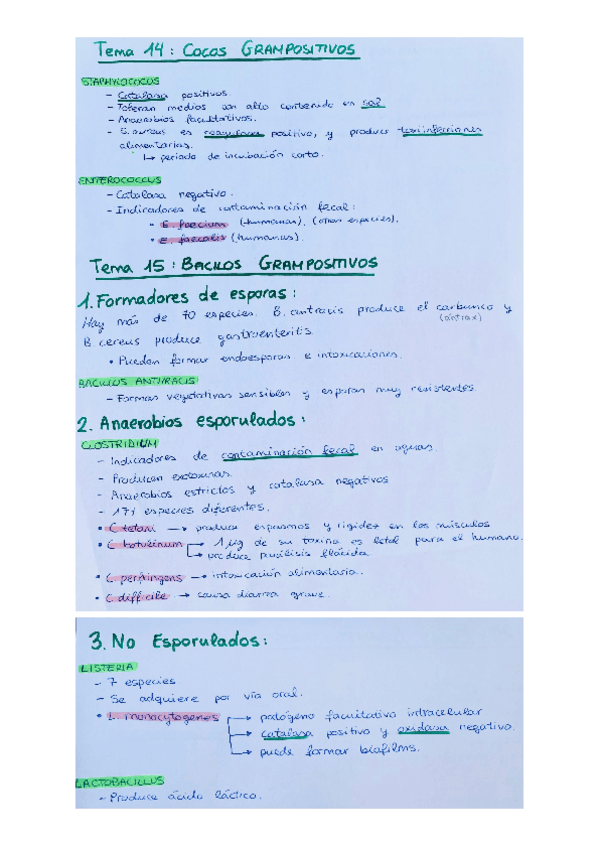 Tema 14: Cocos GRAMPOSITIVOS
STAPHYLOCOCUS
- Catalasa positivos.
- Toleran medios con alto contenido en sal.
- Anaerobios facultativos.
- S. aureus es coagulasa positivo, y produce toxiinfecciones
alimentarias.
↳ periodo de incubación corto.
ENTEROCOCCUS
- Catalasa negativo.
- Indicadores de contaminación fecal:
• E. faecium (humanas), (otras especies).
• E. faecalis (humanas).
Tema 15: BACILOS GRAMPOSITIVOS
1. Formadores de esporas:
Hay más de 70 especies. B. antracis produce el carbunco y
(antrax)
B cereus produce gastroenteritis.
• Pueden formar endoesporas e intoxicaciones.
BACILLUS ANTHRACIS
- Formas vegetativas sensibles y esporas muy resistentes
2. Anaerobios esporulados:
CLOSTRIDIUM
- Indicadores de contaminación fecal en aguas.
- Producen exotoxinas.
- Anaerobios estrictos y catalasa negativos
- 171 especies diferentes.
• C tetani → produce espasmos y rigidez en los músculos
• C. botulinum → 1 µg de su toxina es letal para el humano.
→ produce parálisis flácida
• C. perfringens → intoxicación alimentaria.
• C. difficile → causa diarrea grave.
3. No Esporulados:
LISTERIA
- 7 especies
- Se adquiere por vía oral.
• L. monocytogenes → patógeno facultativo intracelular
→ catalasa positivo y oxidasa negativo.
→ puede formar biofilms.
LACTOBACILLUS
- Produce ácido láctico.